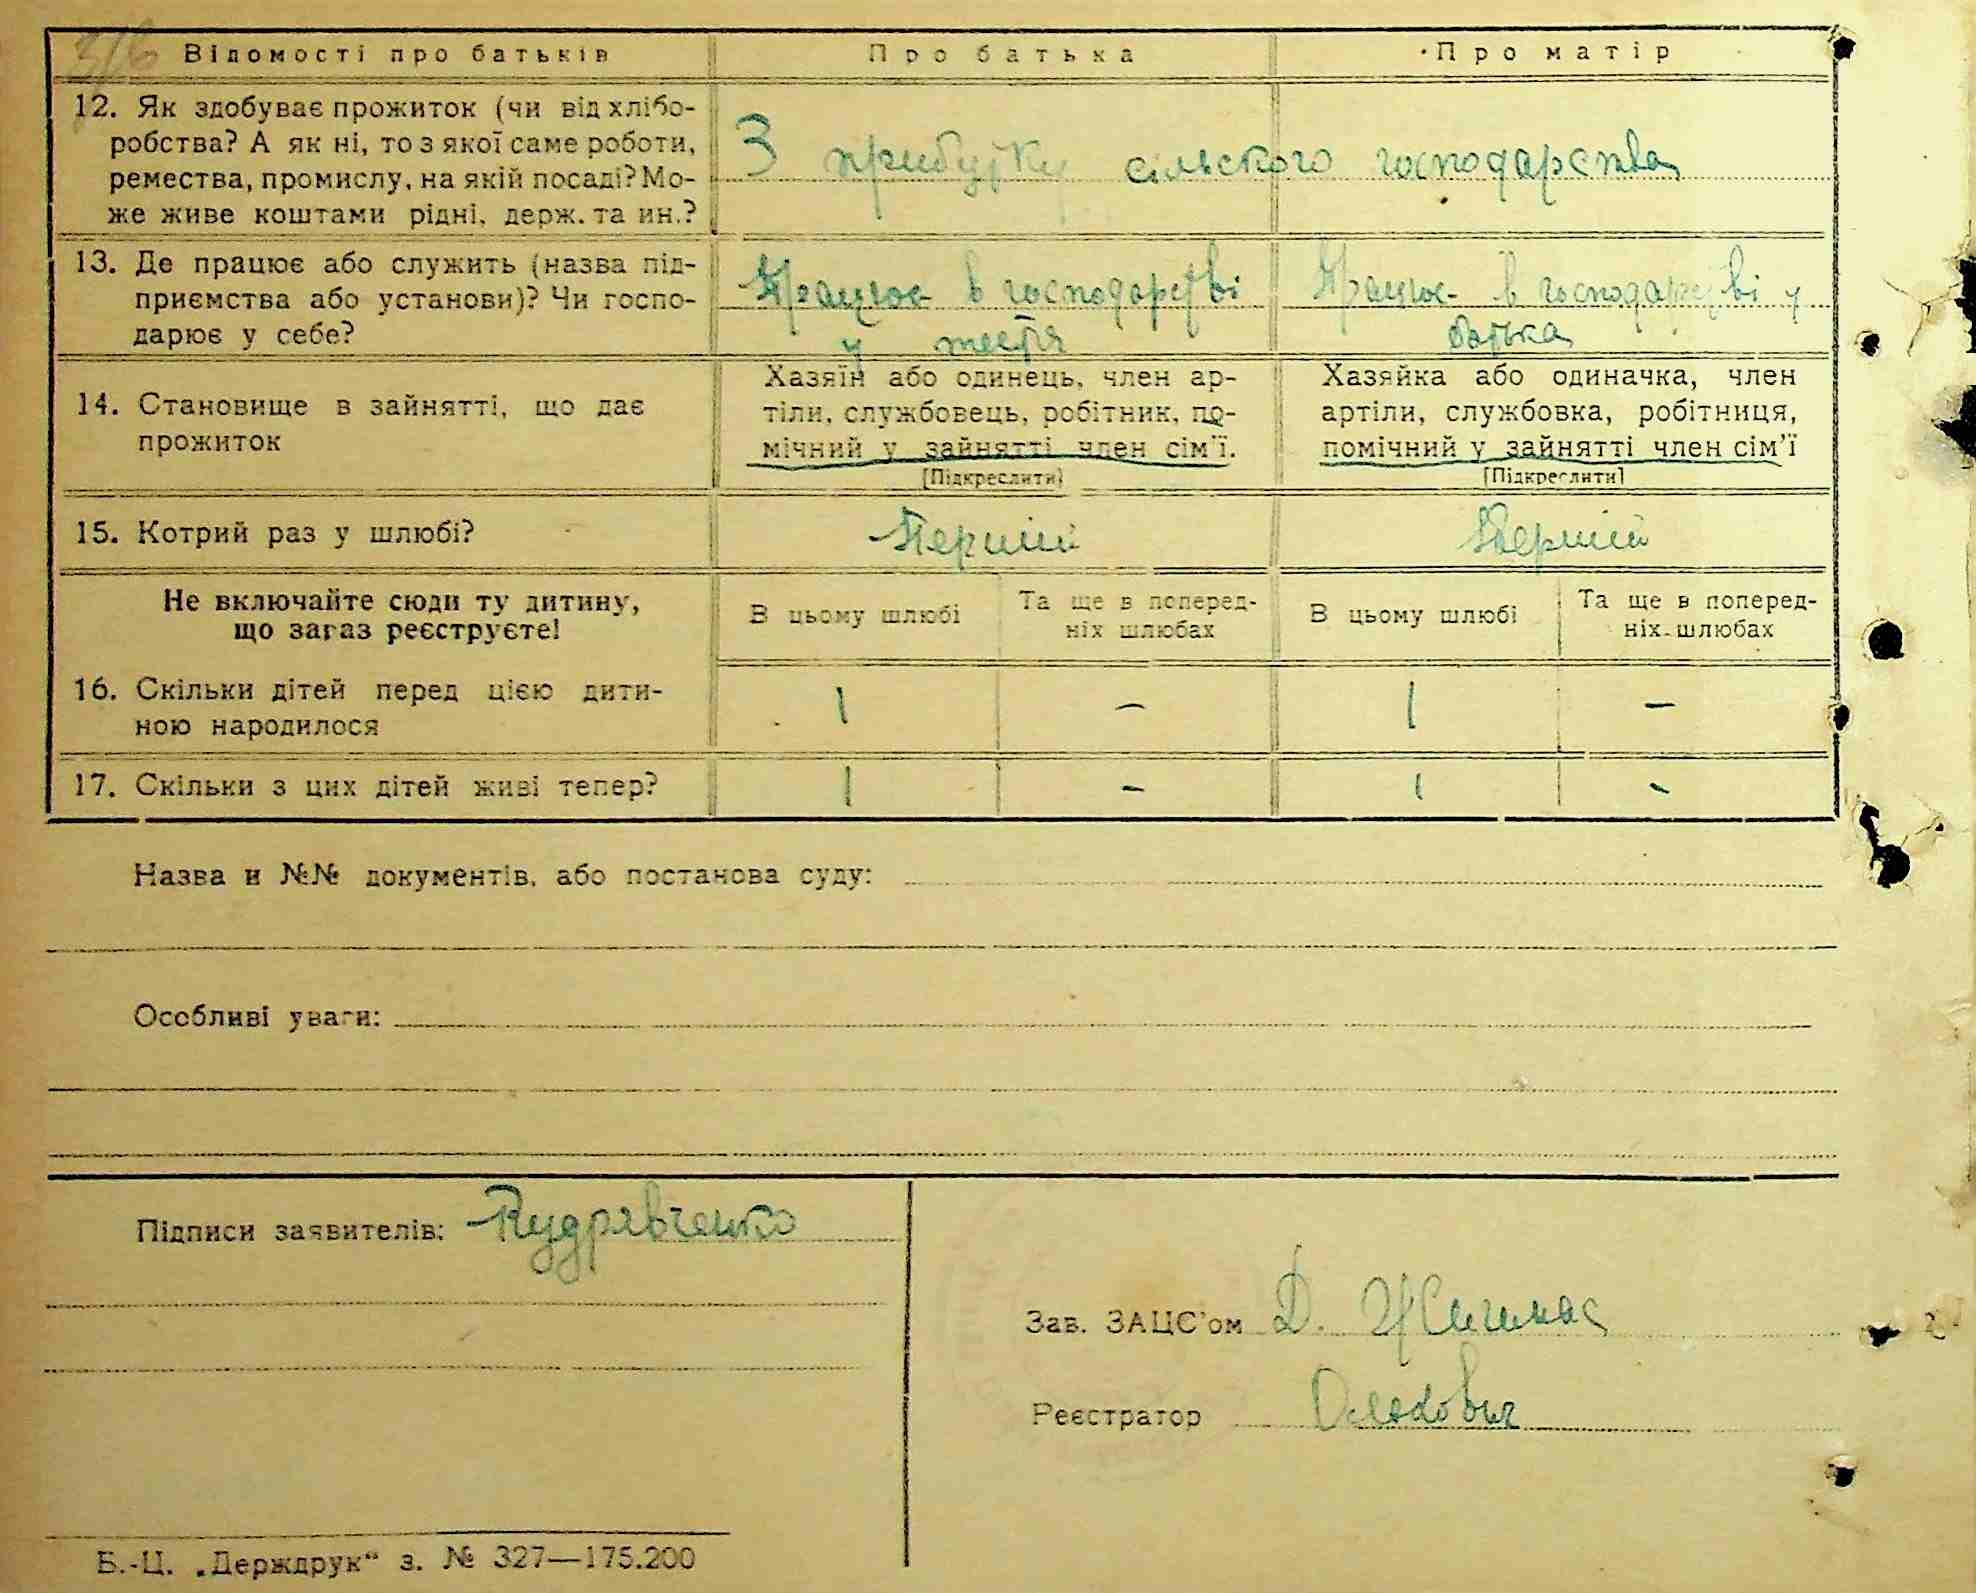 Відомості про батьків Про батька Про матір
12. Як здобуває прожиток (чи від хлібо-
робства? А як ні, то з якої саме роботи,
ремества, промислу, на якій посаді? Мо-
же живе коштами рідні, держ. та ин.?
З прибутку сільского господарства
13. Де працює або служить (назва під-
приємства або установи)? Чи госпо-
дарює у себе?
Працює в господарстві
у тестя
Працює в господарстві у
батька
14. Становище в зайнятті, що дає
прожиток
Хазяїн або одинець, член ар-
тіли, службовець, робітник, по-
мічний у зайнятті член сім'ї.
[Підкреслити]
Хазяйка або одиначка, член
артіли, службовка, робітниця,
помічний у зайнятті член сім'ї
[Підкреслити]
15. Котрий раз у шлюбі? Перший Перший
Не включайте сюди ту дитину,
що зараз реєструєте!
В цьому шлюбі
Та ще в поперед-
ніх шлюбах
В цьому шлюбі
Та ще в поперед-
ніх шлюбах
16. Скільки дітей перед цією дити-
ною народилося
1 – 1 –
17. Скільки з цих дітей живі тепер? 1 – 1 –
Назва и №№ документів, або постанова суду:
Особливі уваги:
Підписи заявителів: Кудрявченко
Зав. ЗАЦС'ом Д.
Реєстратор
Б.-Ц. „Держдрук“ з. № 327—175.200